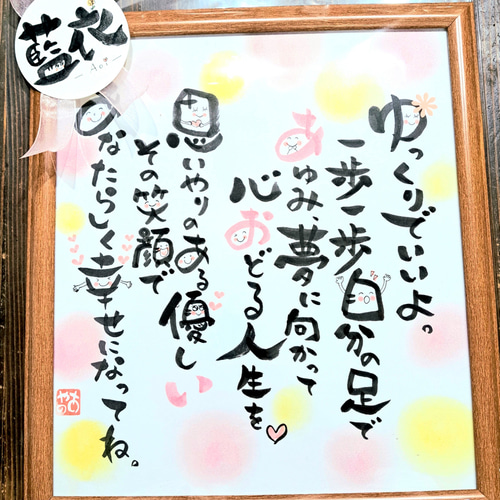 藍衣
- Aoi -
ゆっくりでいいよ。
一歩一歩自分の足で
あゆみ、夢に向かって
心おどる人生を
思いやりのある優しい
その笑顔で
あなたらしく幸せになってね。